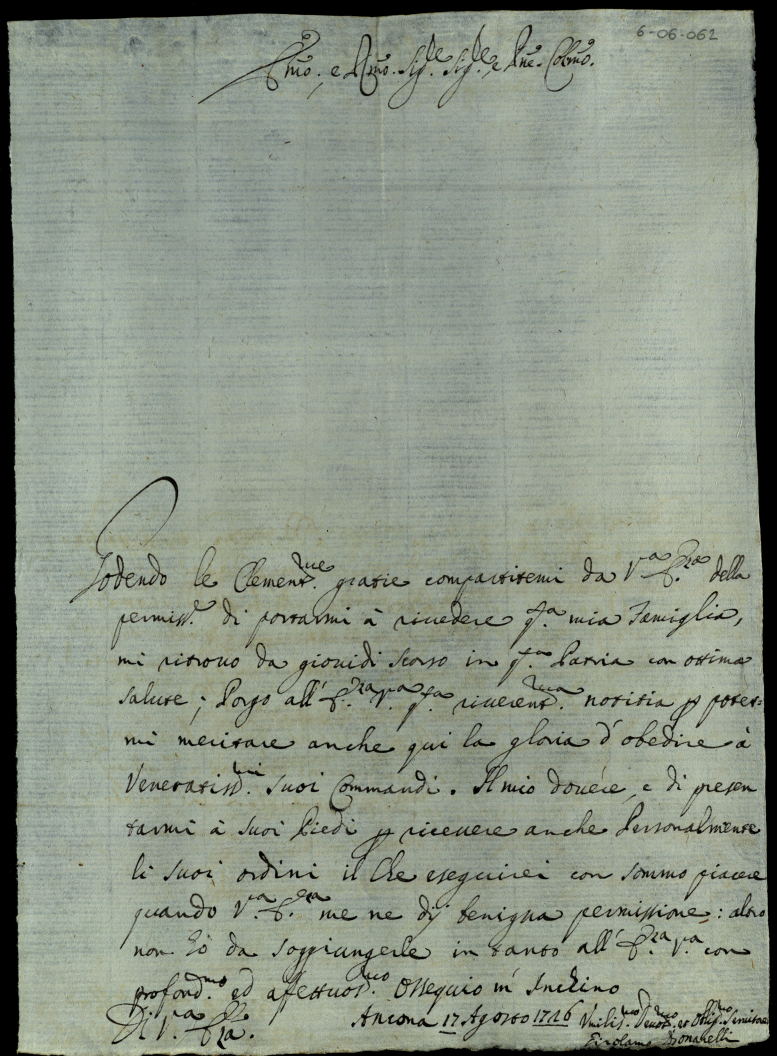 6-06-062
Emo. e Rmo. Sig.re Sig.re e Pne. Colmo.
Godendo le Clement.me gratie compartitemi da V.a E.za della
permiss.e di portarmi à rivedere q.a mia Famiglia,
mi ritrovo da giovidi scorso in q.ta Patria con ottima
salute; Porgo all' E.za V.a q.ta riverent.ma notitia p poter-
mi meritare anche qui la gloria d'obedire à
Veneratiss.mi suoi Commandi. Il mio dovere, e di presen
tarmi à suoi Piedi p ricevere anche Personalmente
li suoi ordini il che eseguirei con sommo piacere
quando V.ra E.za me ne dij benigna permissione: altro
non hò da soggiungerle in tanto all' E.za V.a con
profond.mo ed afettuos.mo Ossequio m' Inchino
Di V.ra E.za.
Ancona 17 Agosto 1726
Umilis.mo Devot.mo et Oblig.mo Servitore
Girolamo Bonarelli